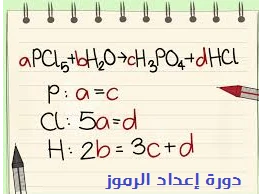 aPCl₅+bH₂O→cH₃PO₄+dHCl
P: a=c
Cl: 5a=d
H: 2b = 3c+d
دورة إعداد الرموز